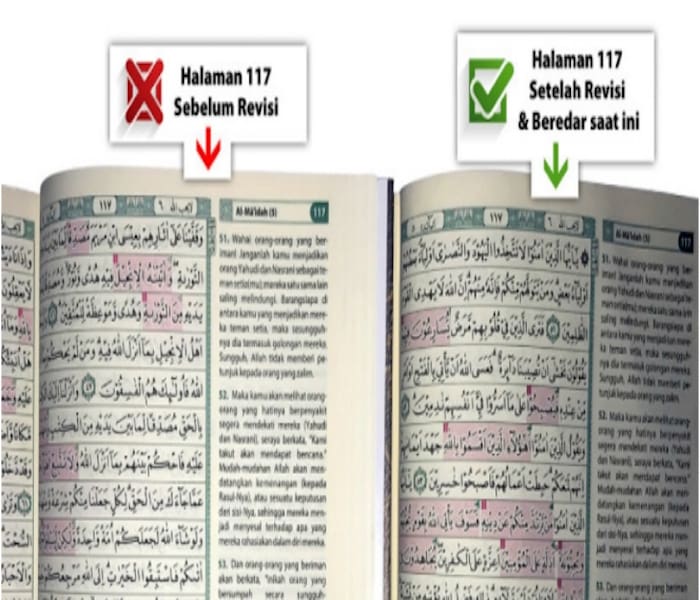 Halaman 117
Sebelum Revisi
Halaman 117
Setelah Revisi
& Beredar saat ini
لا يحب الله ٦
١١٧
Al-Mā'idah (5)
117
وَقَفَّيْنَا عَلٰٓى اٰثَارِهِمْ بِعِيْسَى ابْنِ مَرْيَمَ مُصَدِّقًا لِّمَا بَيْنَ
التَّوْرٰىةِ ۖ وَاٰتَيْنٰهُ الْاِنْجِيْلَ فِيْهِ هُدًى وَّنُوْرٌ
يَدَيْهِ مِنَ التَّوْرٰىةِ وَهُدًى وَّمَوْعِظَةً لِّلْمُتَّقِيْنَ
اَهْلُ الْاِنْجِيْلِ بِمَآ اَنْزَلَ اللّٰهُ فِيْهِ ۗ وَمَنْ لَّمْ يَحْكُمْ
اللّٰهُ فَاُولٰۤىِٕكَ هُمُ الْفٰسِقُوْنَ ٤٧ وَاَنْزَلْنَآ
بِالْحَقِّ مُصَدِّقًا لِّمَا بَيْنَ يَدَيْهِ مِنَ الْكِتٰبِ
عَلَيْهِ فَاحْكُمْ بَيْنَهُمْ بِمَآ اَنْزَلَ اللّٰهُ وَلَا تَتَّبِعْ
عَمَّا جَاۤءَكَ مِنَ الْحَقِّ ۗ لِكُلٍّ جَعَلْنَا مِنْكُمْ شِرْعَةً
وَلَوْ شَاۤءَ اللّٰهُ لَجَعَلَكُمْ اُمَّةً وَّاحِدَةً وَّلٰكِنْ
اٰتٰىكُمْ فَاسْتَبِقُوا الْخَيْرٰتِ ۗ اِلَى اللّٰهِ مَرْجِعُكُمْ
51. Wahai orang-orang yang ber-
iman! Janganlah kamu menjadikan
orang Yahudi dan Nasrani sebagai te-
man setia(mu); mereka satu sama lain
saling melindungi. Barangsiapa di
antara kamu yang menjadikan mere-
ka teman setia, maka sesungguh-
nya dia termasuk golongan mereka.
Sungguh, Allah tidak memberi pe-
tunjuk kepada orang yang zalim.
52. Maka kamu akan melihat orang-
orang yang hatinya berpenyakit
segera mendekati mereka (Yahudi
dan Nasrani), seraya berkata, "Kami
takut akan mendapat bencana."
Mudah-mudahan Allah akan men-
datangkan kemenangan (kepada
Rasul-Nya), atau sesuatu keputusan
dari sisi-Nya, sehingga mereka men-
jadi menyesal terhadap apa yang
mereka rahasiakan dalam diri mereka.
53. Dan orang-orang yang beriman
akan berkata, "Inikah orang yang
bersumpah secara sungguh-
لا يحب الله ٦
١١٧
Al-Mā'idah (5)
117
يٰٓاَيُّهَا الَّذِيْنَ اٰمَنُوْا لَا تَتَّخِذُوا الْيَهُوْدَ وَالنَّصٰرٰٓى اَوْلِيَاۤءَ ۘ بَعْضُهُمْ
اَوْلِيَاۤءُ بَعْضٍ ۗ وَمَنْ يَّتَوَلَّهُمْ مِّنْكُمْ فَاِنَّهٗ مِنْهُمْ ۗ اِنَّ اللّٰهَ لَا يَهْدِى الْقَوْمَ
الظّٰلِمِيْنَ ٥١ فَتَرَى الَّذِيْنَ فِيْ قُلُوْبِهِمْ مَّرَضٌ يُّسَارِعُوْنَ فِيْهِمْ
يَقُوْلُوْنَ نَخْشٰٓى اَنْ تُصِيْبَنَا دَاۤىِٕرَةٌ ۗ فَعَسَى اللّٰهُ اَنْ يَّأْتِيَ بِالْفَتْحِ اَوْ اَمْرٍ
مِّنْ عِنْدِهٖ فَيُصْبِحُوْا عَلٰى مَآ اَسَرُّوْا فِيْٓ اَنْفُسِهِمْ نٰدِمِيْنَ ٥٢
وَيَقُوْلُ الَّذِيْنَ اٰمَنُوْٓا اَهٰٓؤُلَاۤءِ الَّذِيْنَ اَقْسَمُوْا بِاللّٰهِ جَهْدَ اَيْمَانِهِمْ
اِنَّهُمْ لَمَعَكُمْ ۗ حَبِطَتْ اَعْمَالُهُمْ فَاَصْبَحُوْا خٰسِرِيْنَ ٥٣
الَّذِيْنَ اٰمَنُوْا مَنْ يَّرْتَدَّ مِنْكُمْ عَنْ دِيْنِهٖ فَسَوْفَ يَأْتِى اللّٰهُ بِقَوْمٍ يُّحِبُّهُمْ
وَيُحِبُّوْنَهٗٓ ۙ اَذِلَّةٍ عَلَى الْمُؤْمِنِيْنَ اَعِزَّةٍ عَلَى الْكٰفِرِيْنَ ۖ يُجَاهِدُوْنَ
51. Wahai orang-orang yang ber-
iman! Janganlah kamu menjadikan
orang Yahudi dan Nasrani sebagai te-
man setia(mu); mereka satu sama lain
saling melindungi. Barangsiapa di
antara kamu yang menjadikan mere-
ka teman setia, maka sesungguh-
nya dia termasuk golongan mereka.
Sungguh, Allah tidak memberi pe-
tunjuk kepada orang yang zalim.
52. Maka kamu akan melihat orang-
orang yang hatinya berpenyakit
segera mendekati mereka (Yahudi
dan Nasrani), seraya berkata, "Kami
takut akan mendapat bencana."
Mudah-mudahan Allah akan men-
datangkan kemenangan (kepada
Rasul-Nya), atau sesuatu keputusan
dari sisi-Nya, sehingga mereka men-
jadi menyesal terhadap apa yang
mereka rahasiakan dalam diri mereka.
53. Dan orang-orang yang beriman